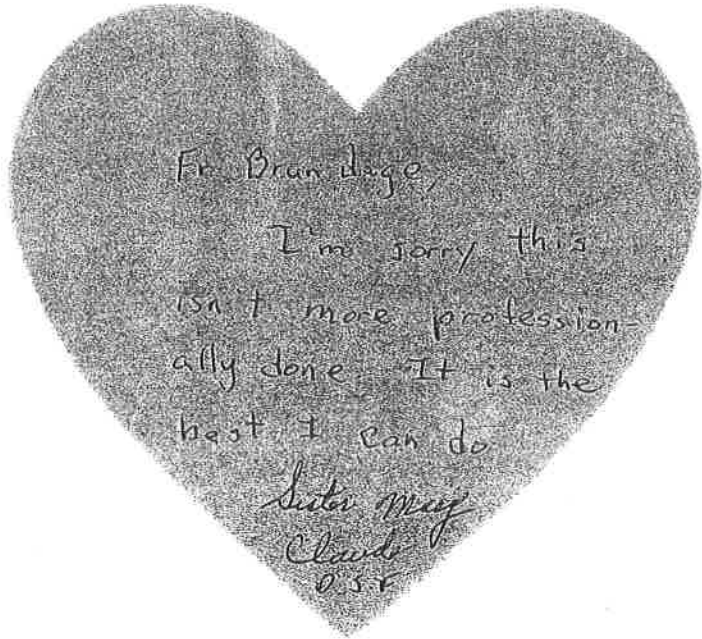 Fr. Brundage,
I'm sorry this
isn't more profession-
ally done. It is the
best I can do.
Sister Mary
Claude
OSF